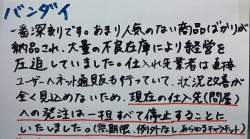 バンダイ
一番深刻です。あまり人気のない商品ばかりが
納品され、大量の不良在庫により経営を
圧迫していました。仕入れ先業者は直接
ユーザーへネット通販も行っていて、状況改善が
全く見込めないため、現在の仕入先(問屋)
への発注は一担すべて停止することに
いたしました。(無期限、例外なし